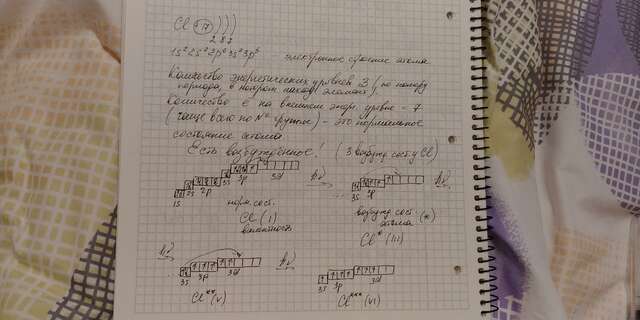 Cl +17 ) ) )
2 8 7
1s² 2s² 2p⁶ 3s² 3p⁵ - электронное строение атома
Количество энергетических уровней 3 (по номеру
периода, в котором наход. элемент).
Количество е на внешнем энер. уровне - 7
(чаще всего по № группы) - это нормальное
состояние атома
Есть возбужденное! (3 возбужд. сост у Cl)
1s 2s 2p 3s 3p 3d
3s 3p
норм. сост.
Cl (I)
валентность
возбужд. сост.
атома (*)
Cl* (III)
3s 3p 3d
Cl** (V)
3s 3p 3d
Cl*** (VI)